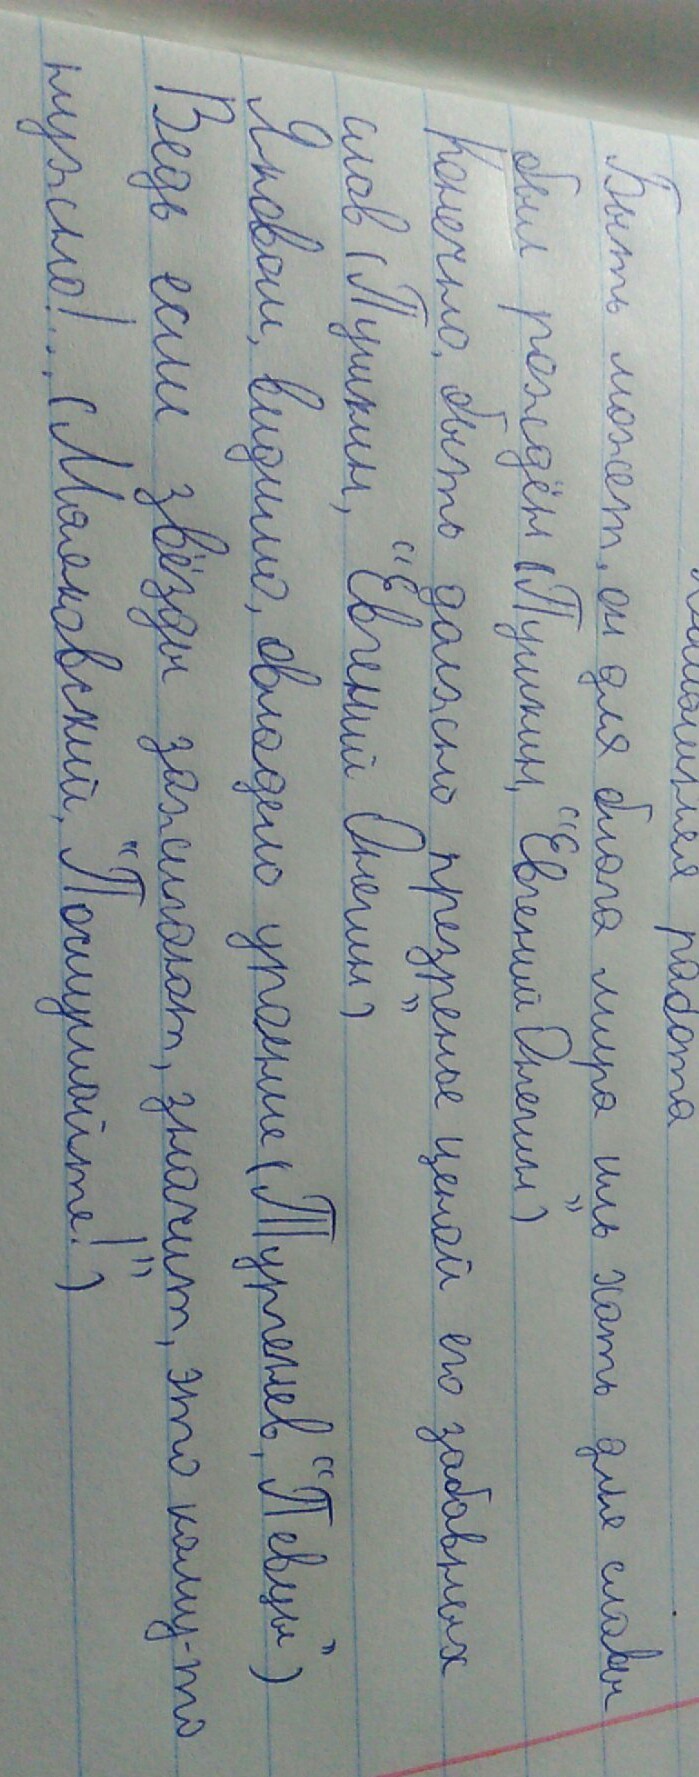 Домашняя работа
Быть может, он для блага мира иль хоть для славы
был рождён (Пушкин, "Евгений Онегин")
Конечно, быть должно презренье ценой его забавных
слов (Пушкин, "Евгений Онегин")
Яковом, видимо, овладело упоение (Тургенев, "Певцы")
Ведь если звёзды зажигают, значит, это кому-то
нужно!.. (Маяковский, "Послушайте!")